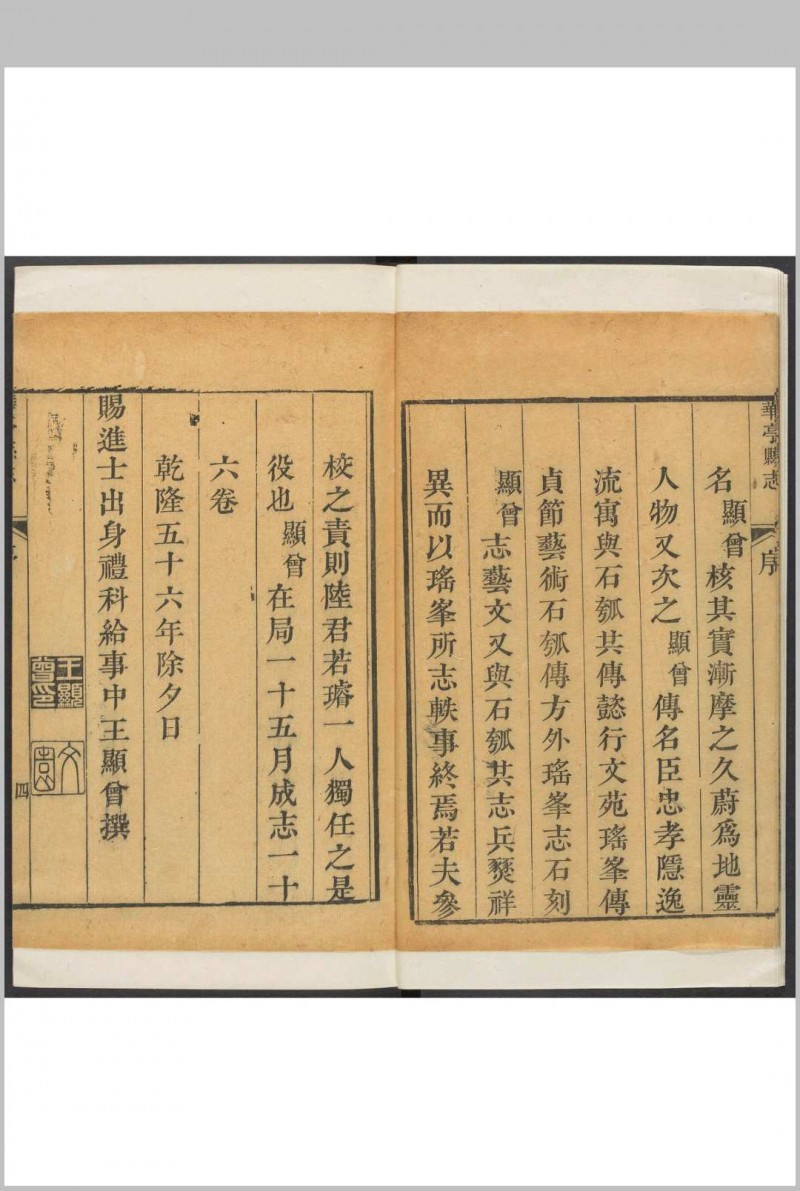 華亭縣志
序
名顯曾核其實漸摩之久蔚爲地靈
人物又次之顯曾傳名臣忠孝隱逸
流寓與石瓠共傳懿行文苑瑤峯傳
貞節藝術石瓠傳方外瑤峯志石刻
顯曾志藝文又與石瓠共志兵燹祥
異而以瑤峯所志軼事終焉若夫參
校之責則陸君若璿一人獨任之是
役也顯曾在局一十五月成志一十
六卷
乾隆五十六年除夕日
賜進士出身禮科給事中王顯曾撰
王顯曾印
文園
四